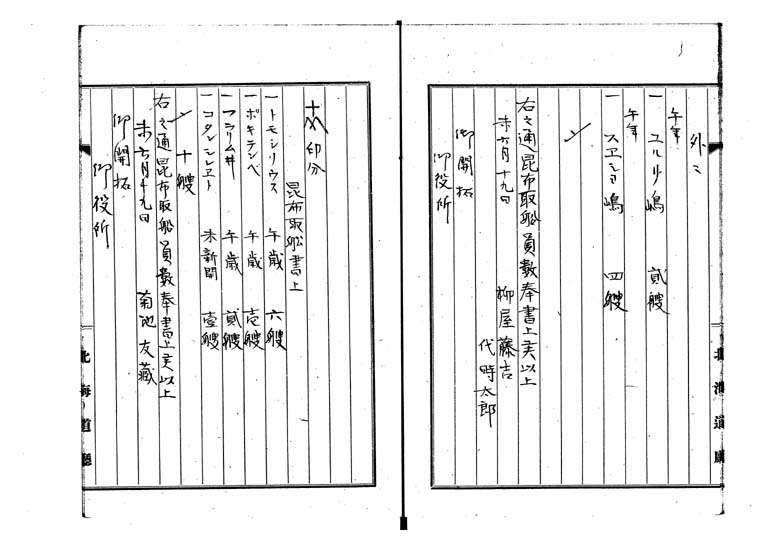 外ニ
午年
一 ユルリ嶋 貳艘
午年
一 スエシヨ嶋 四艘
右之通昆布取船員数奉書上候以上
未六月十九日 柳屋藤吉
代時太郎
御開拓
御役所
北海道廳
印分
昆布取船書上
一 トモシリウス 午歳 六艘
一 ポキテシベ 午歳 壱艘
一 フラリム井 午歳 貳艘
一 コタンシレヱト 未新開 壹艘
〆 十艘
右之通昆布取船員数奉書上候以上
未六月十九日 菊池友藏
御開拓
御役所
北海道廳